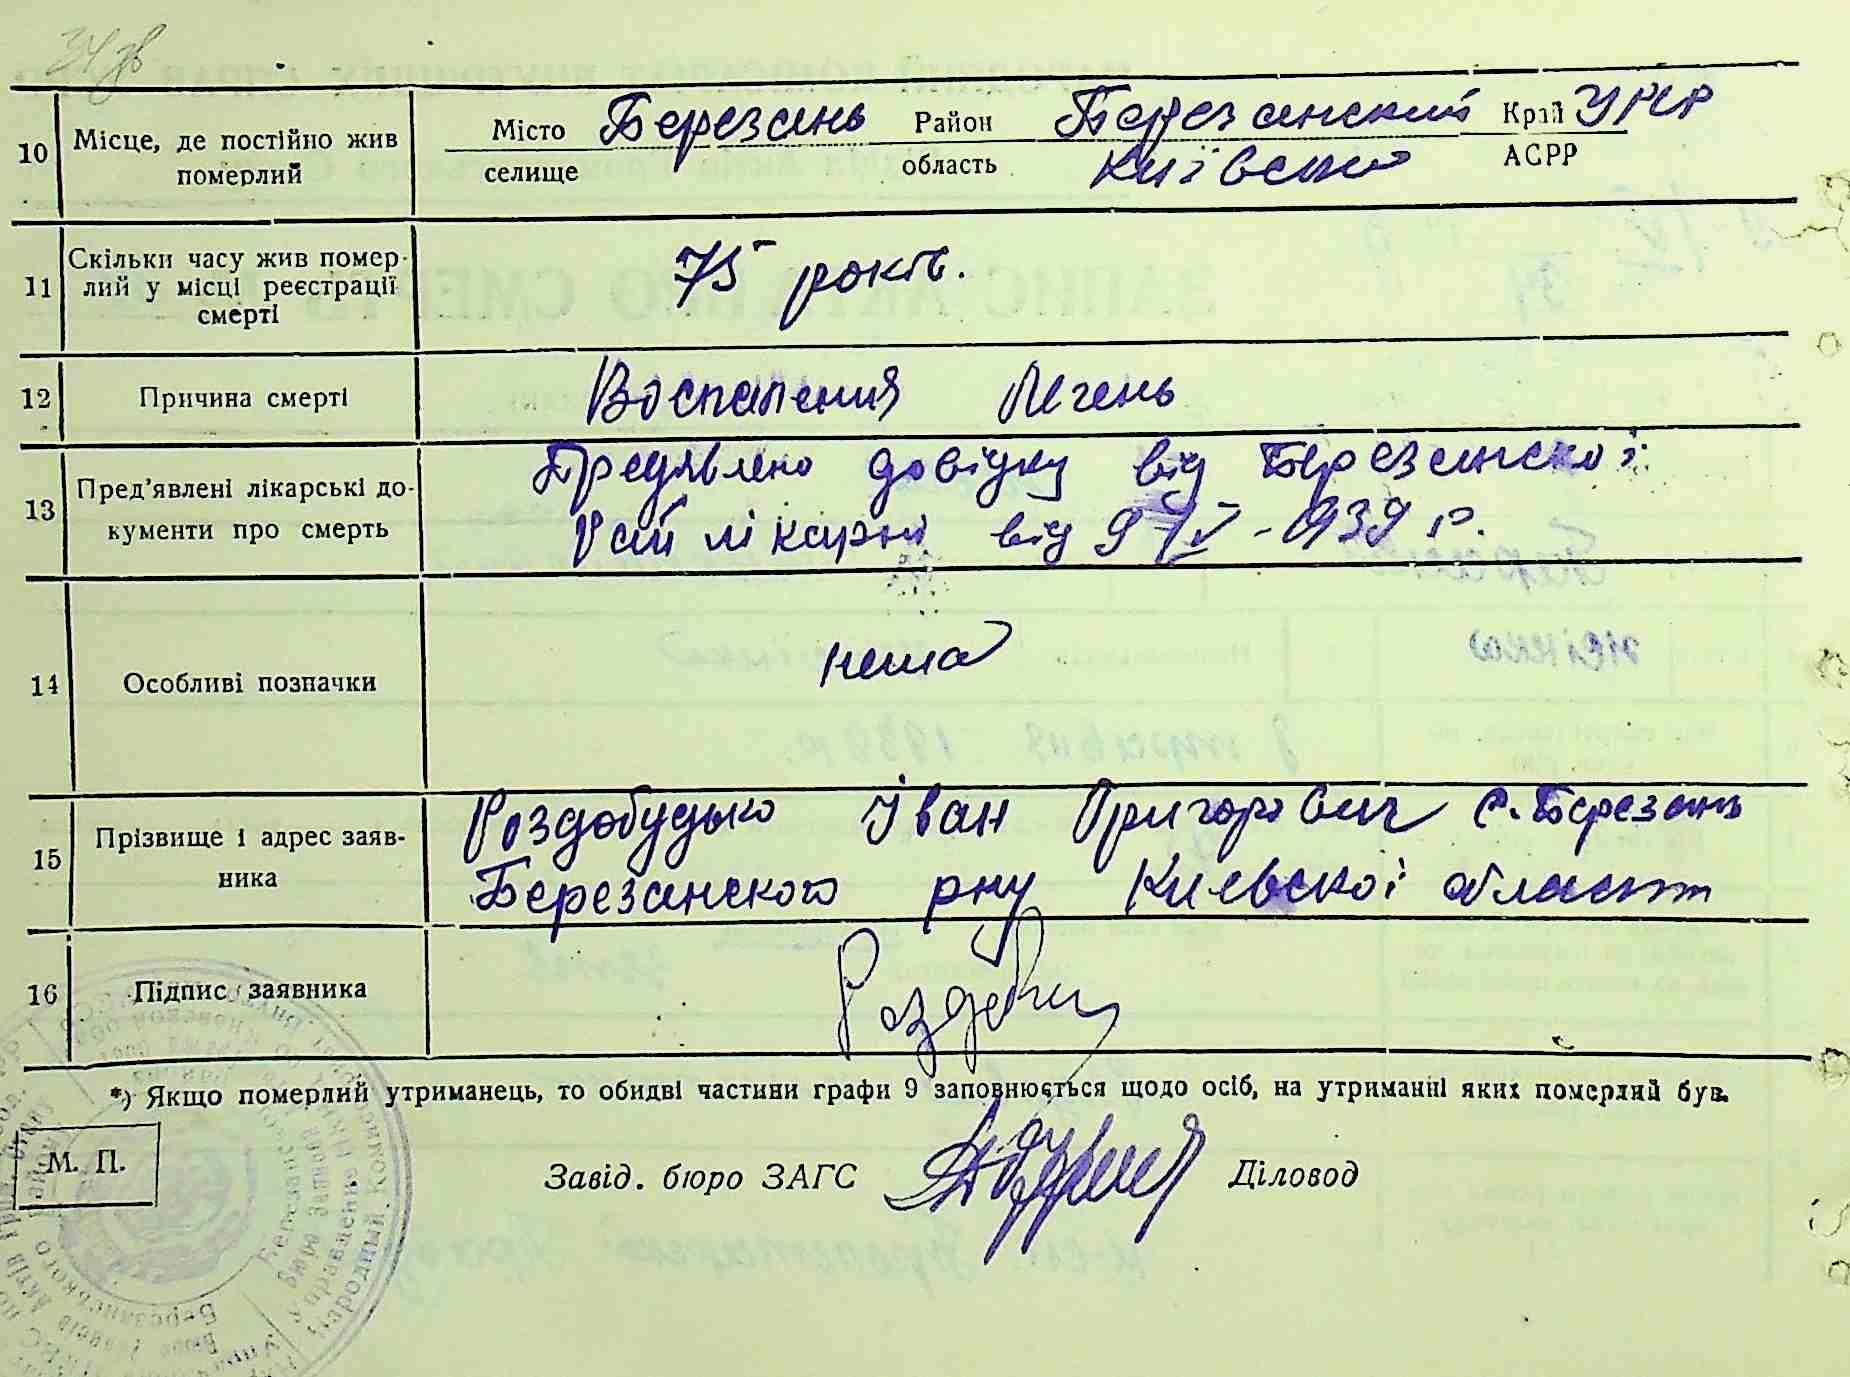 34 зв
10 Місце, де постійно жив померлий
Місто Березань Район Березанский Край УРСР
селище область Київській АСРР
11 Скільки часу жив помер-
лий у місці реєстрації
смерті
75 років.
12 Причина смерті Воспаления Печень
13 Пред'явлені лікарські до-
кументи про смерть
Предявлено довідку від Березанскої
Рай лікарні від 9/IV-1939 р.
14 Особливі позначки нема
15 Прізвище і адрес заяв-
ника
Роздобудько Іван Григорович с. Березань
Березанского рну Києвскої області
16 Підпис заявника
*) Якщо померлий утриманець, то обидві частини графи 9 заповнюється щодо осіб, на утриманні яких померлий був.
М. П.
Завід. бюро ЗАГС Діловод